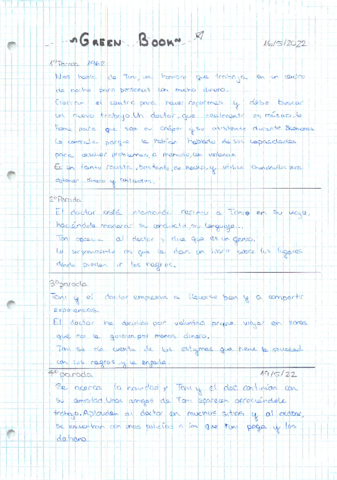 ~GREEN BOOK~
16/5/2022
1ª Parada 1962
Nos habla de Toni, un hombre que trabaja en un centro
de noche para personas con mucho dinero.
Cierran el centro para hacer reformas y debe buscar
un nuevo trabajo. Un doctor, que realmente es músico, le
llama para que sea su chófer y su asistente durante 8 semanas
le contrata porque le habían hablado de sus capacidades
para resolver problemas, a menudo, con violencia.
Es un tanto racista,
obtener dinero y
2ª Parada
El doctor está intentando reeducar a Toni en su viaje,
haciéndole mejorar su conducta, su lenguaje...
Toni al doctor y dice que es un genio.
Lo sorprendente es que le dan un libro sobre los lugares
donde pueden ir los negros.
3ª parada
Toni y el doctor empiezan a llevarse bien y a compartir
experiencias.
El doctor ha decidido por voluntad propia viajar en zonas
que no le quieren por menos dinero.
Toni se da cuenta de los estigmas que tiene la sociedad
con los negros y se enfada.
4ª parada
19/5/22
Se acerca la navidad y Toni y el doc continúan con
su amistad. Unos amigos de Toni aparecen ofreciéndole
trabajo. Aplauden al doctor en muchos sitios y al acabar,
se encuentran con unos policías a los que Toni pega y los
detienen.